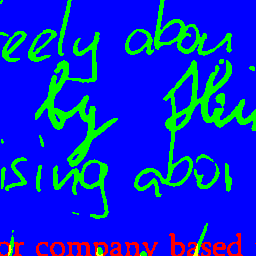 eely abou
by
ising abou
or company based